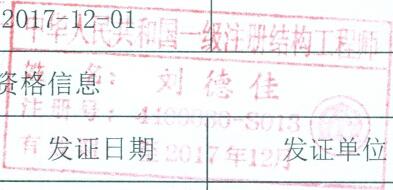 2017-12-01
中华人民共和国一级注册结构工程师
姓名：刘德佳
资格信息
注册号：4100060-S013
有 至2017年12月
发证日期 发证单位